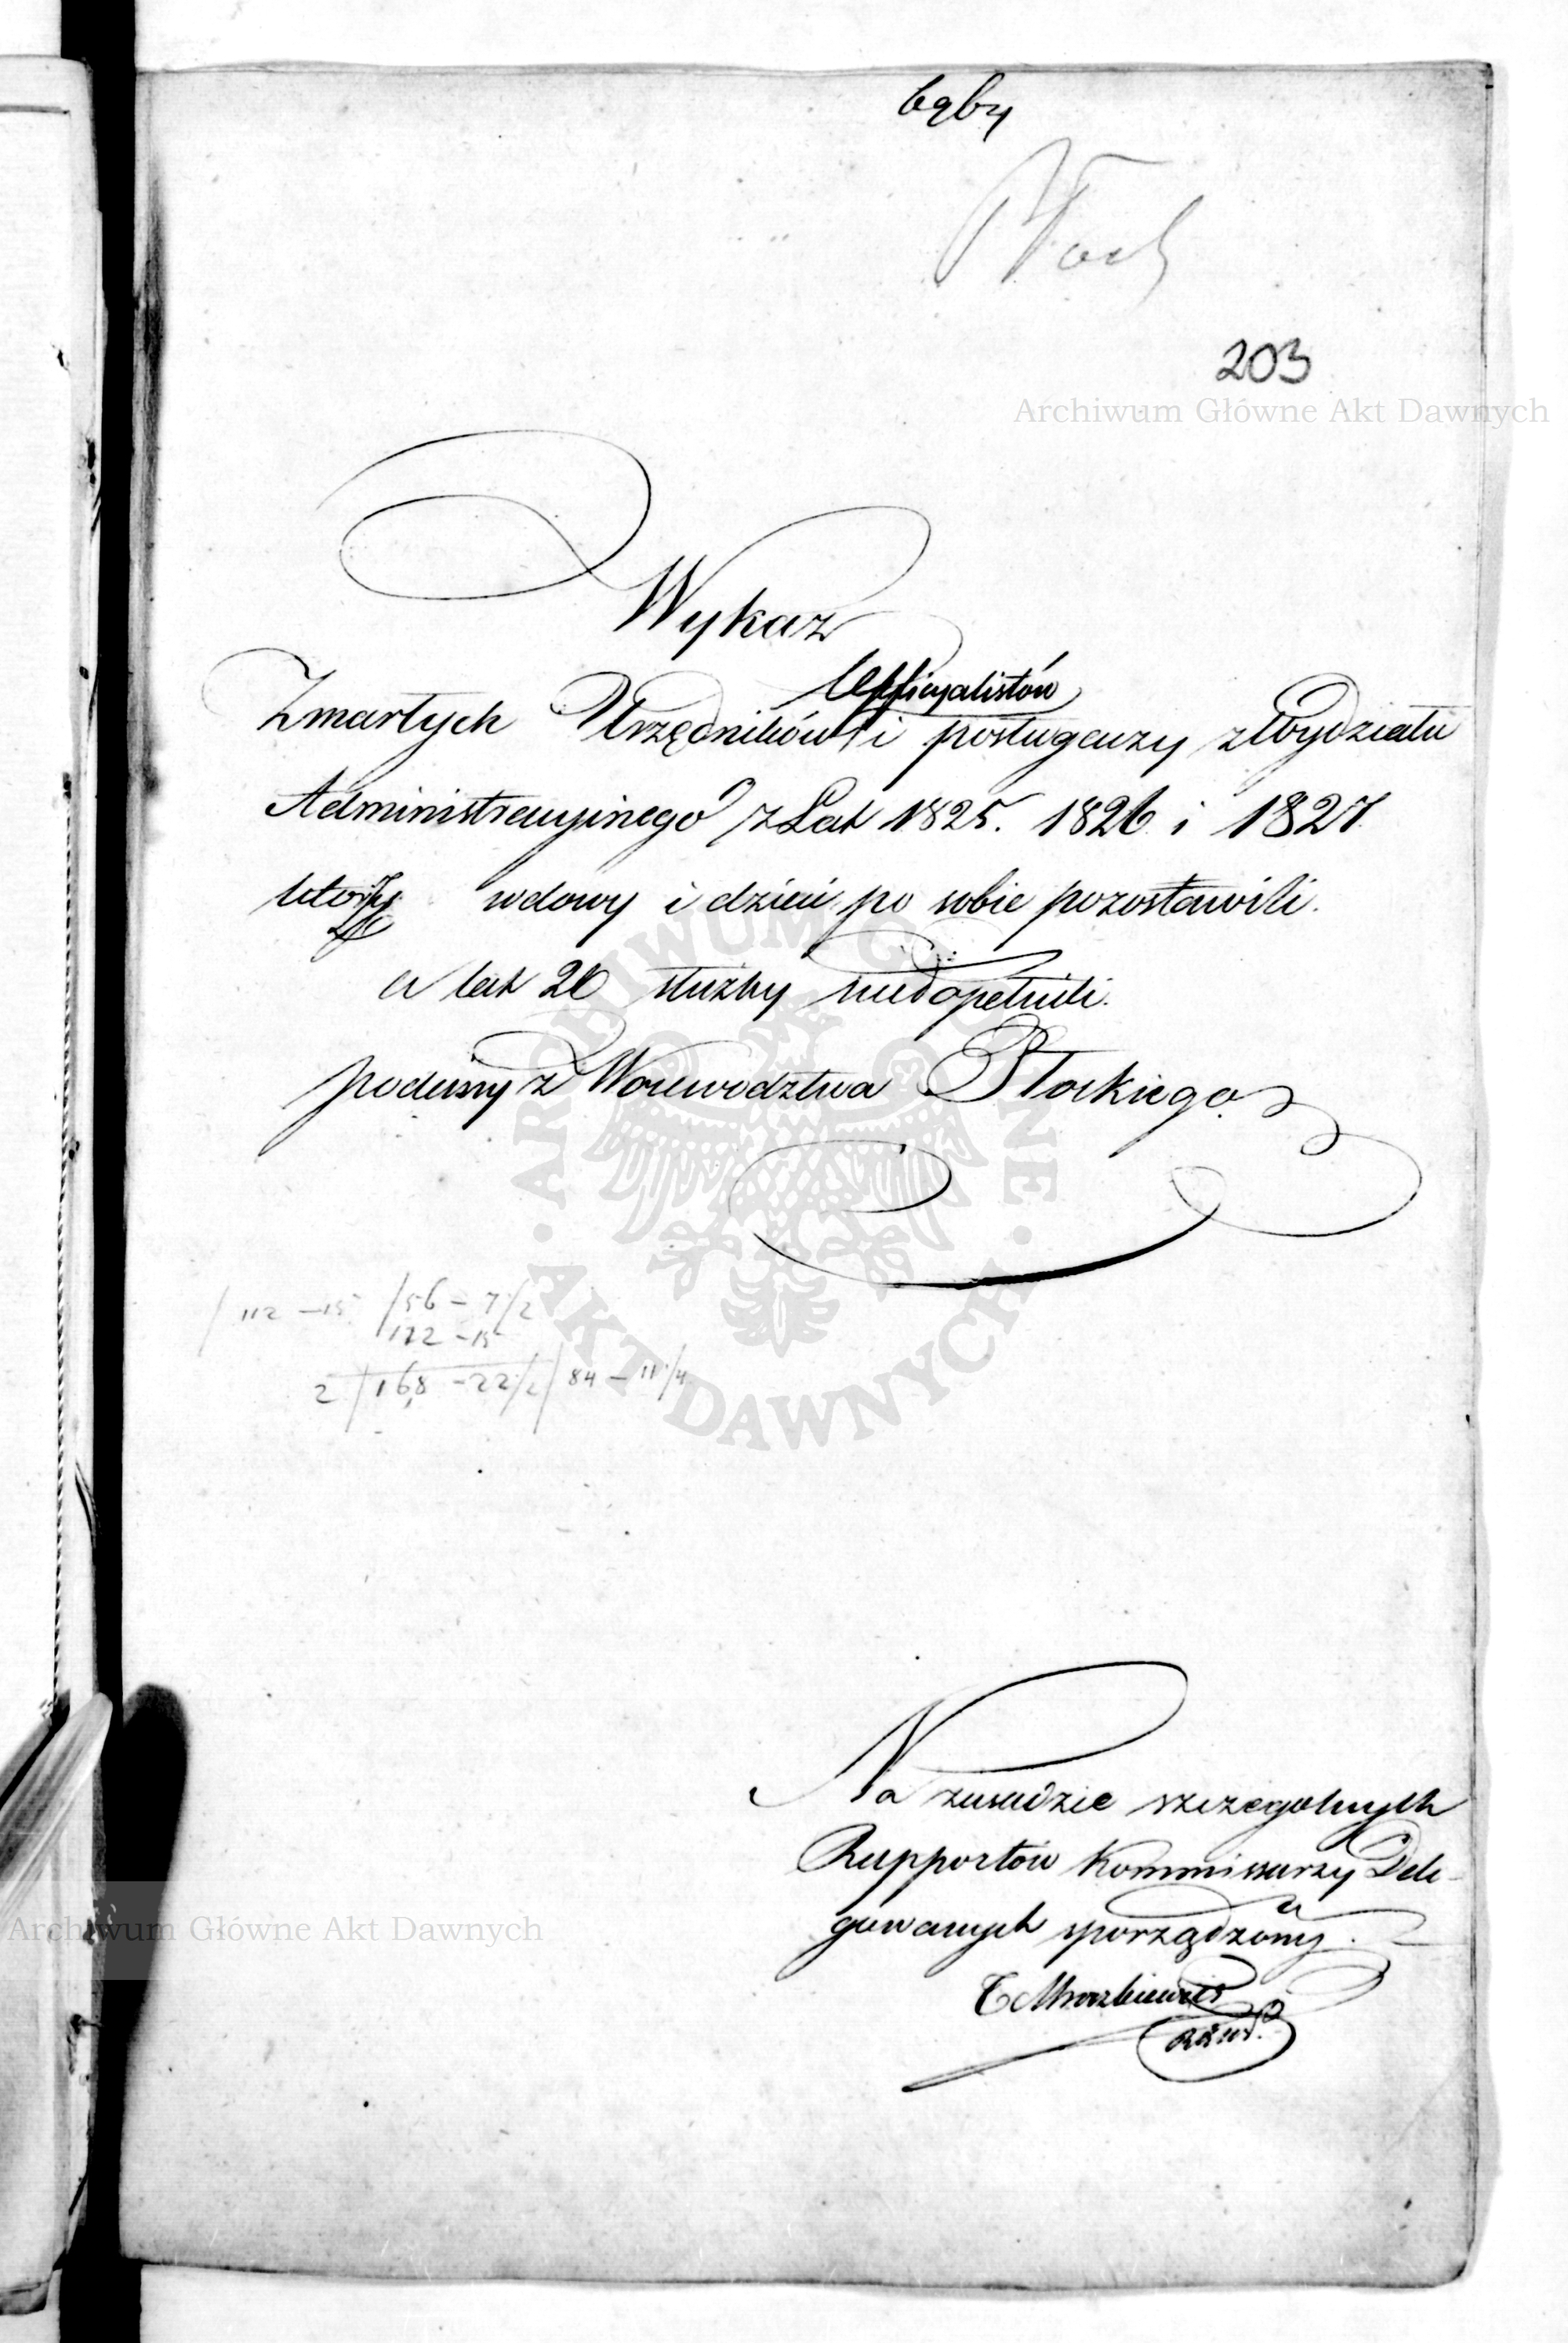 Płock
203
Archiwum Główne Akt Dawnych
Wykaz
Officyalistów
Zmarłych Urzędników i posługaczy z Wydziału
Administracyinego z Lat 1825. 1826 i 1827.
którzy wdowy i dzieci po sobie pozostawili.
a lat 20 służby niedopełnili.
podany z Woiewodztwa Płockiego.
ARCHIWUM GŁÓWNE · AKT DAWNYCH ·
112 – 15 56 – 7/2
112 – 15
2 / 168 – 22/2 / 84 – 11/4
Na zasadzie szczegolnych
Rapportów Kommissarzy Dele-
gowanych sporządzony.
Archiwum Główne Akt Dawnych